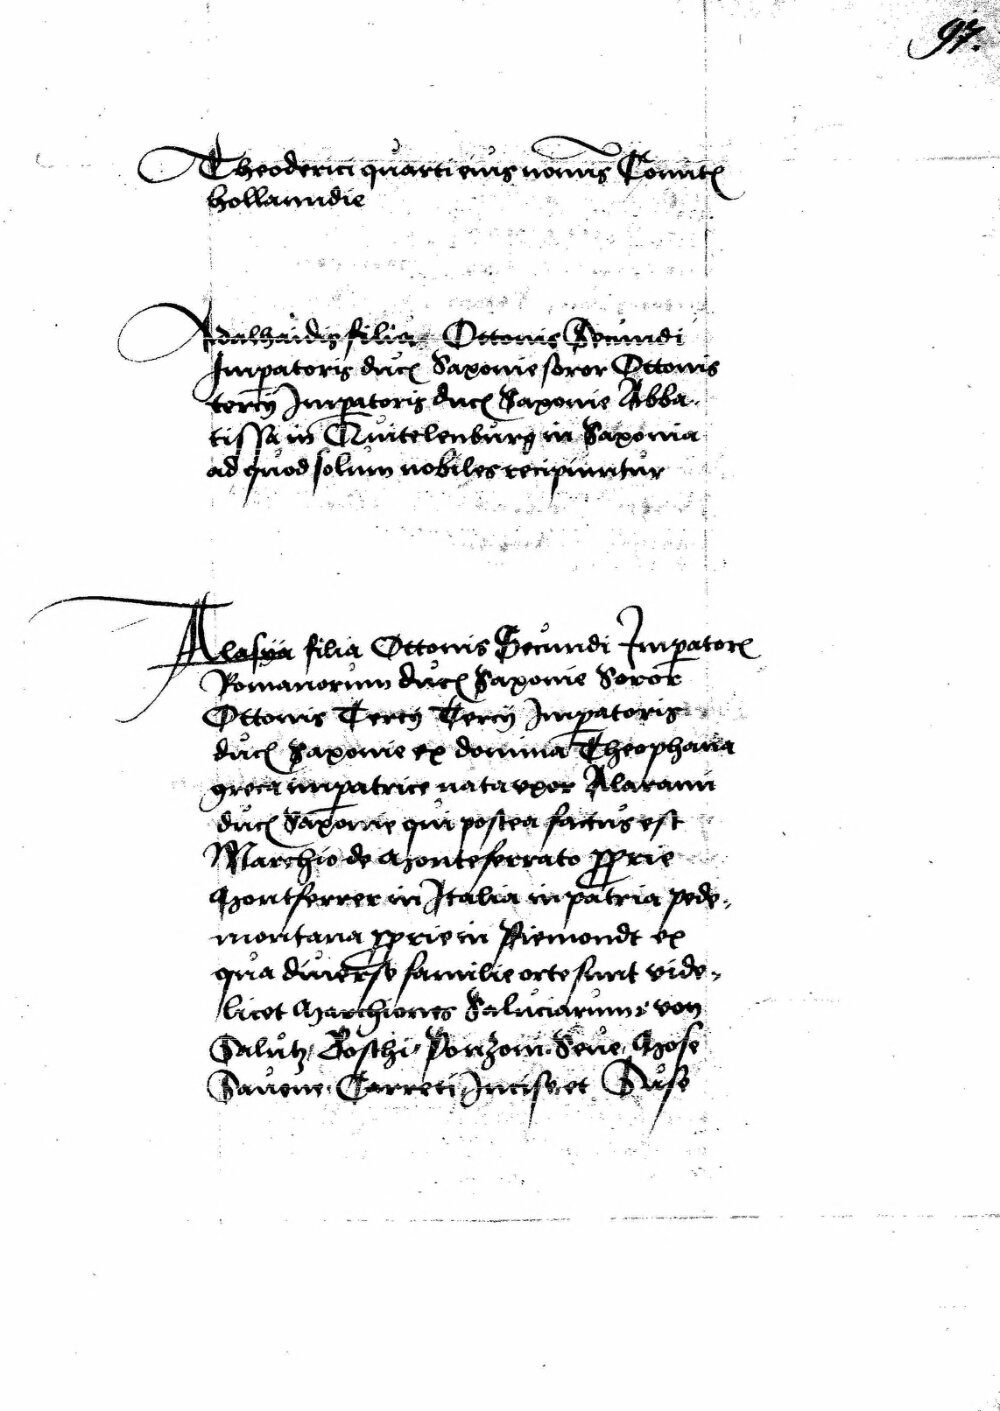 97.
Theoderici quarti eius nominis Comitis
hollanndie
Adalhaidis filia Ottonis Secundi
Imperatoris ducis Saxonie soror Ottonis
tercij Imperatoris ducis Saxonie Abba-
tissa in Quitelenburg in Saxonia
ad quod solum nobiles recipiuntur
Alasya filia Ottonis Secundi Imperatoris
Romanorum ducis Saxonie Soror
Ottonis Tercij Tercij Imperatoris
ducis Saxonie ex domina Theophana
greca imperatrice nata uxor Alarami
ducis Saxonie qui postea factus est
Marchio de Monteferrato proprie
Montferrer in Italia in patria pede-
montana proprie in Piemondt ex
qua diverse familie orte sunt vide-
licet Marchiones Saluciarum von
Salutz, Boschi, Ponzoni, Seve, Mose
Savene, Carreti, Incise et Buse